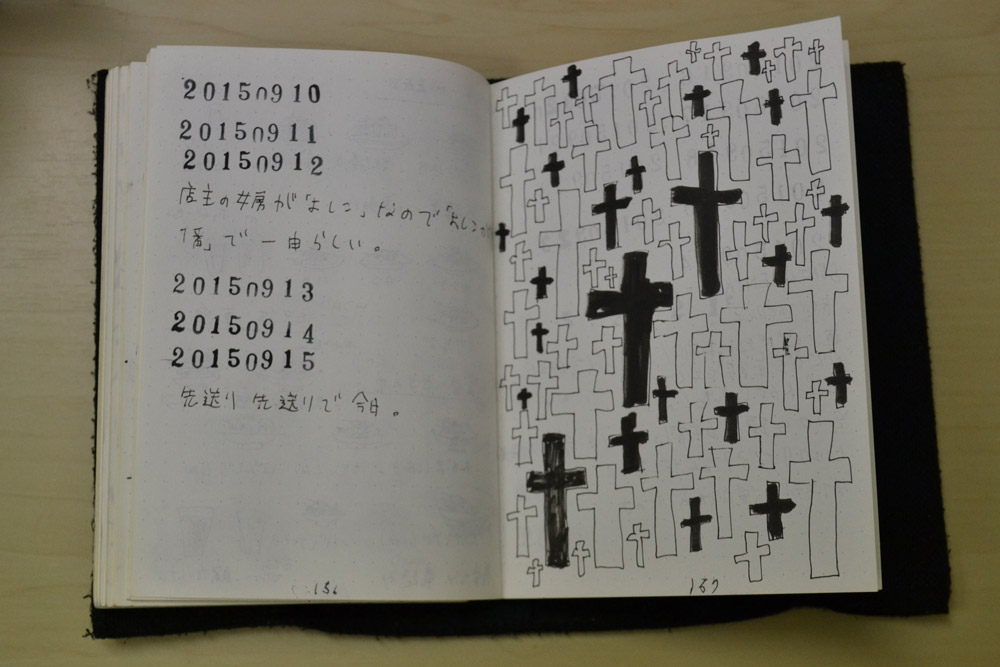 20150910
20150911
20150912
店主の女房が「よしこ」なので「よしこの
憶」で一曲らしい。
20150913
20150914
20150915
先送り 先送りで 今日。
136
137